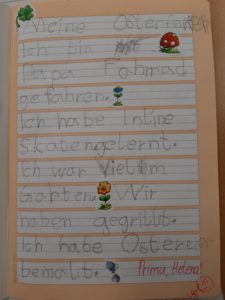 Meine Osterferien
Ich bin mit
Papa Fahrrad
gefahren.
Ich habe Inline
Skaten gelernt.
Ich war viel im
Garten. Wir
haben gegrillt.
Ich habe Ostereier
bemalt. Prima, Helena!